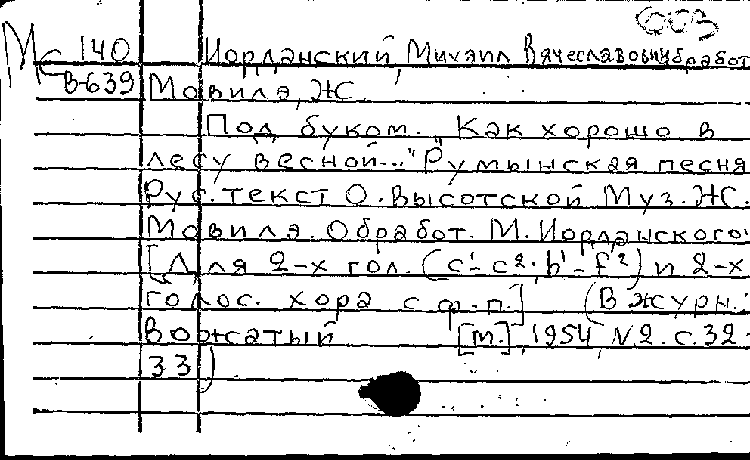 003
Мс 140 Иорданский, Михаил Вячеславович, обработ
В-639 Мовиля, Ж.
Под буком. "Как хорошо в
лесу весной..." Румынская песня
Рус. текст О. Высотской Муз. Ж.
Мовиля. Обработ. М. Иорданского.
[Для 2-х гол. (c¹-c²; h¹-f²) и 2-х
голос. хора с ф.-п.] (В журн.:
Вожатый [М.], 1954, №2. с. 32-
33)